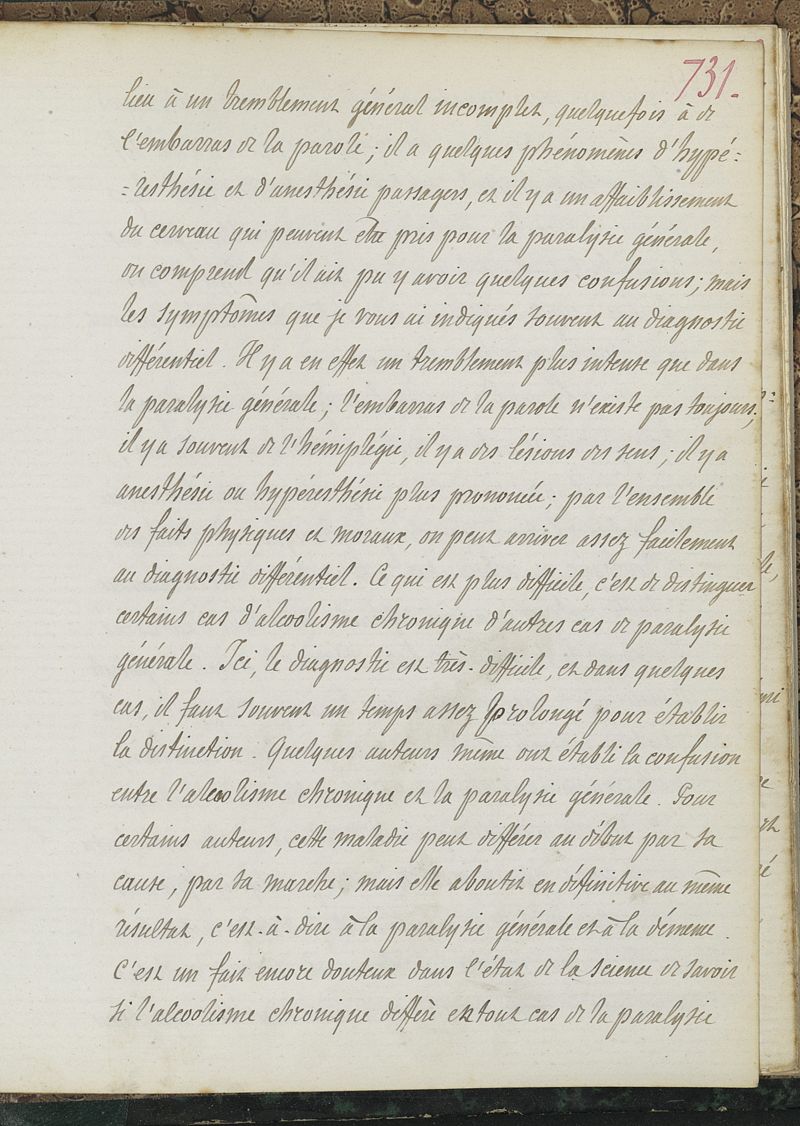 731.
lieu à un tremblement général incomplet, quelquefois à de
l'embarras de la parole ; il a quelques phénomènes d'hypé=
=resthésie et d'anesthésie passagers, et il y a un affaiblissement
du cerveau qui peuvent être pris pour la paralysie générale,
on comprend qu'il ait pu y avoir quelques confusions ; mais
les symptômes que je vous ai indiqués souvent au diagnostic
différentiel. Il y a en effet un tremblement plus intense que dans
la paralysie générale ; l'embarras de la parole n'existe pas toujours ;
il y a souvent de l'hémiplégie, il y a des lésions des sens ; il y a
anesthésie ou hypéresthésie plus prononcée ; par l'ensemble
des faits physiques et moraux, on peut arriver assez facilement
au diagnostic différentiel. Ce qui est plus difficile, c'est de distinguer
certains cas d'alcoolisme chronique d'autres cas de paralysie
générale. Ici, le diagnostic est très-difficile, et dans quelques
cas, il faut souvent un temps assez prolongé pour établir
la distinction. Quelques auteurs même ont établi la confusion
entre l'alcoolisme chronique et la paralysie générale. Pour
certains auteurs, cette maladie peut différer au début par sa
cause, par sa marche ; mais elle aboutit en définitive au même
résultat, c'est-à-dire à la paralysie générale et à la démence.
C'est un fait encore douteux dans l'état de la science de savoir
si l'alcoolisme chronique diffère en tout cas de la paralysie